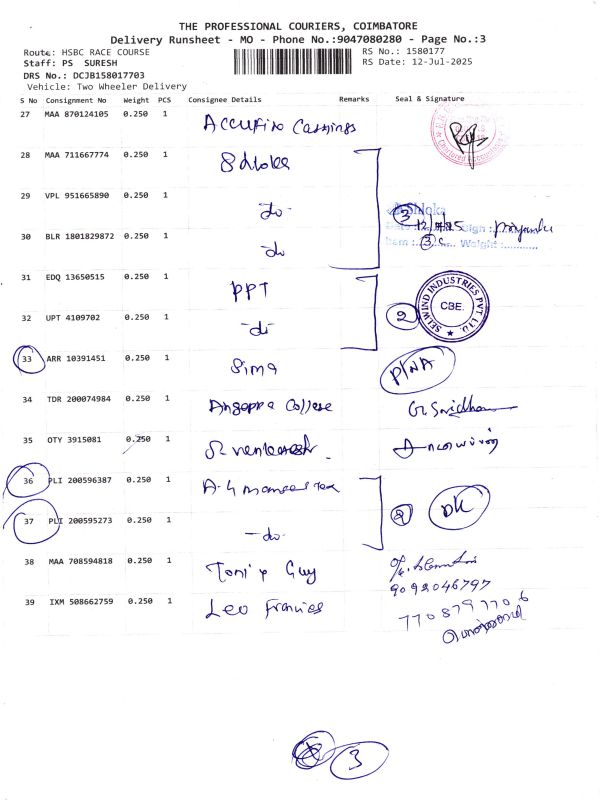 THE PROFESSIONAL COURIERS, COIMBATORE
Delivery Runsheet - MO - Phone No.:9047080280 - Page No.:3
Route: HSBC RACE COURSE
RS No.: 1580177
Staff: PS SURESH
RS Date: 12-Jul-2025
DRS No.: DCJB158017703
Vehicle: Two Wheeler Delivery
S No Consignment No Weight PCS Consignee Details Remarks Seal & Signature
27 MAA 870124105 0.250 1
28 MAA 711667774 0.250 1 Shloka
29 VPL 951665890 0.250 1 -do-
30 BLR 1801829872 0.250 1 do
3
31 EDQ 13650515 0.250 1 PPT
32 UPT 4109702 0.250 1 -do-
2 SELWIND INDUSTRIES PVT LTD. CBE.
33 ARR 10391451 0.250 1 Sima
34 TDR 200074984 0.250 1 College
35 OTY 3915081 0.250 1
36 PLI 200596387 0.250 1
37 PLI 200595273 0.250 1 -do-
38 MAA 708594818 0.250 1 Toni Guy
9092046797
39 IXM 508662759 0.250 1 Leo Francies
7708797706
3